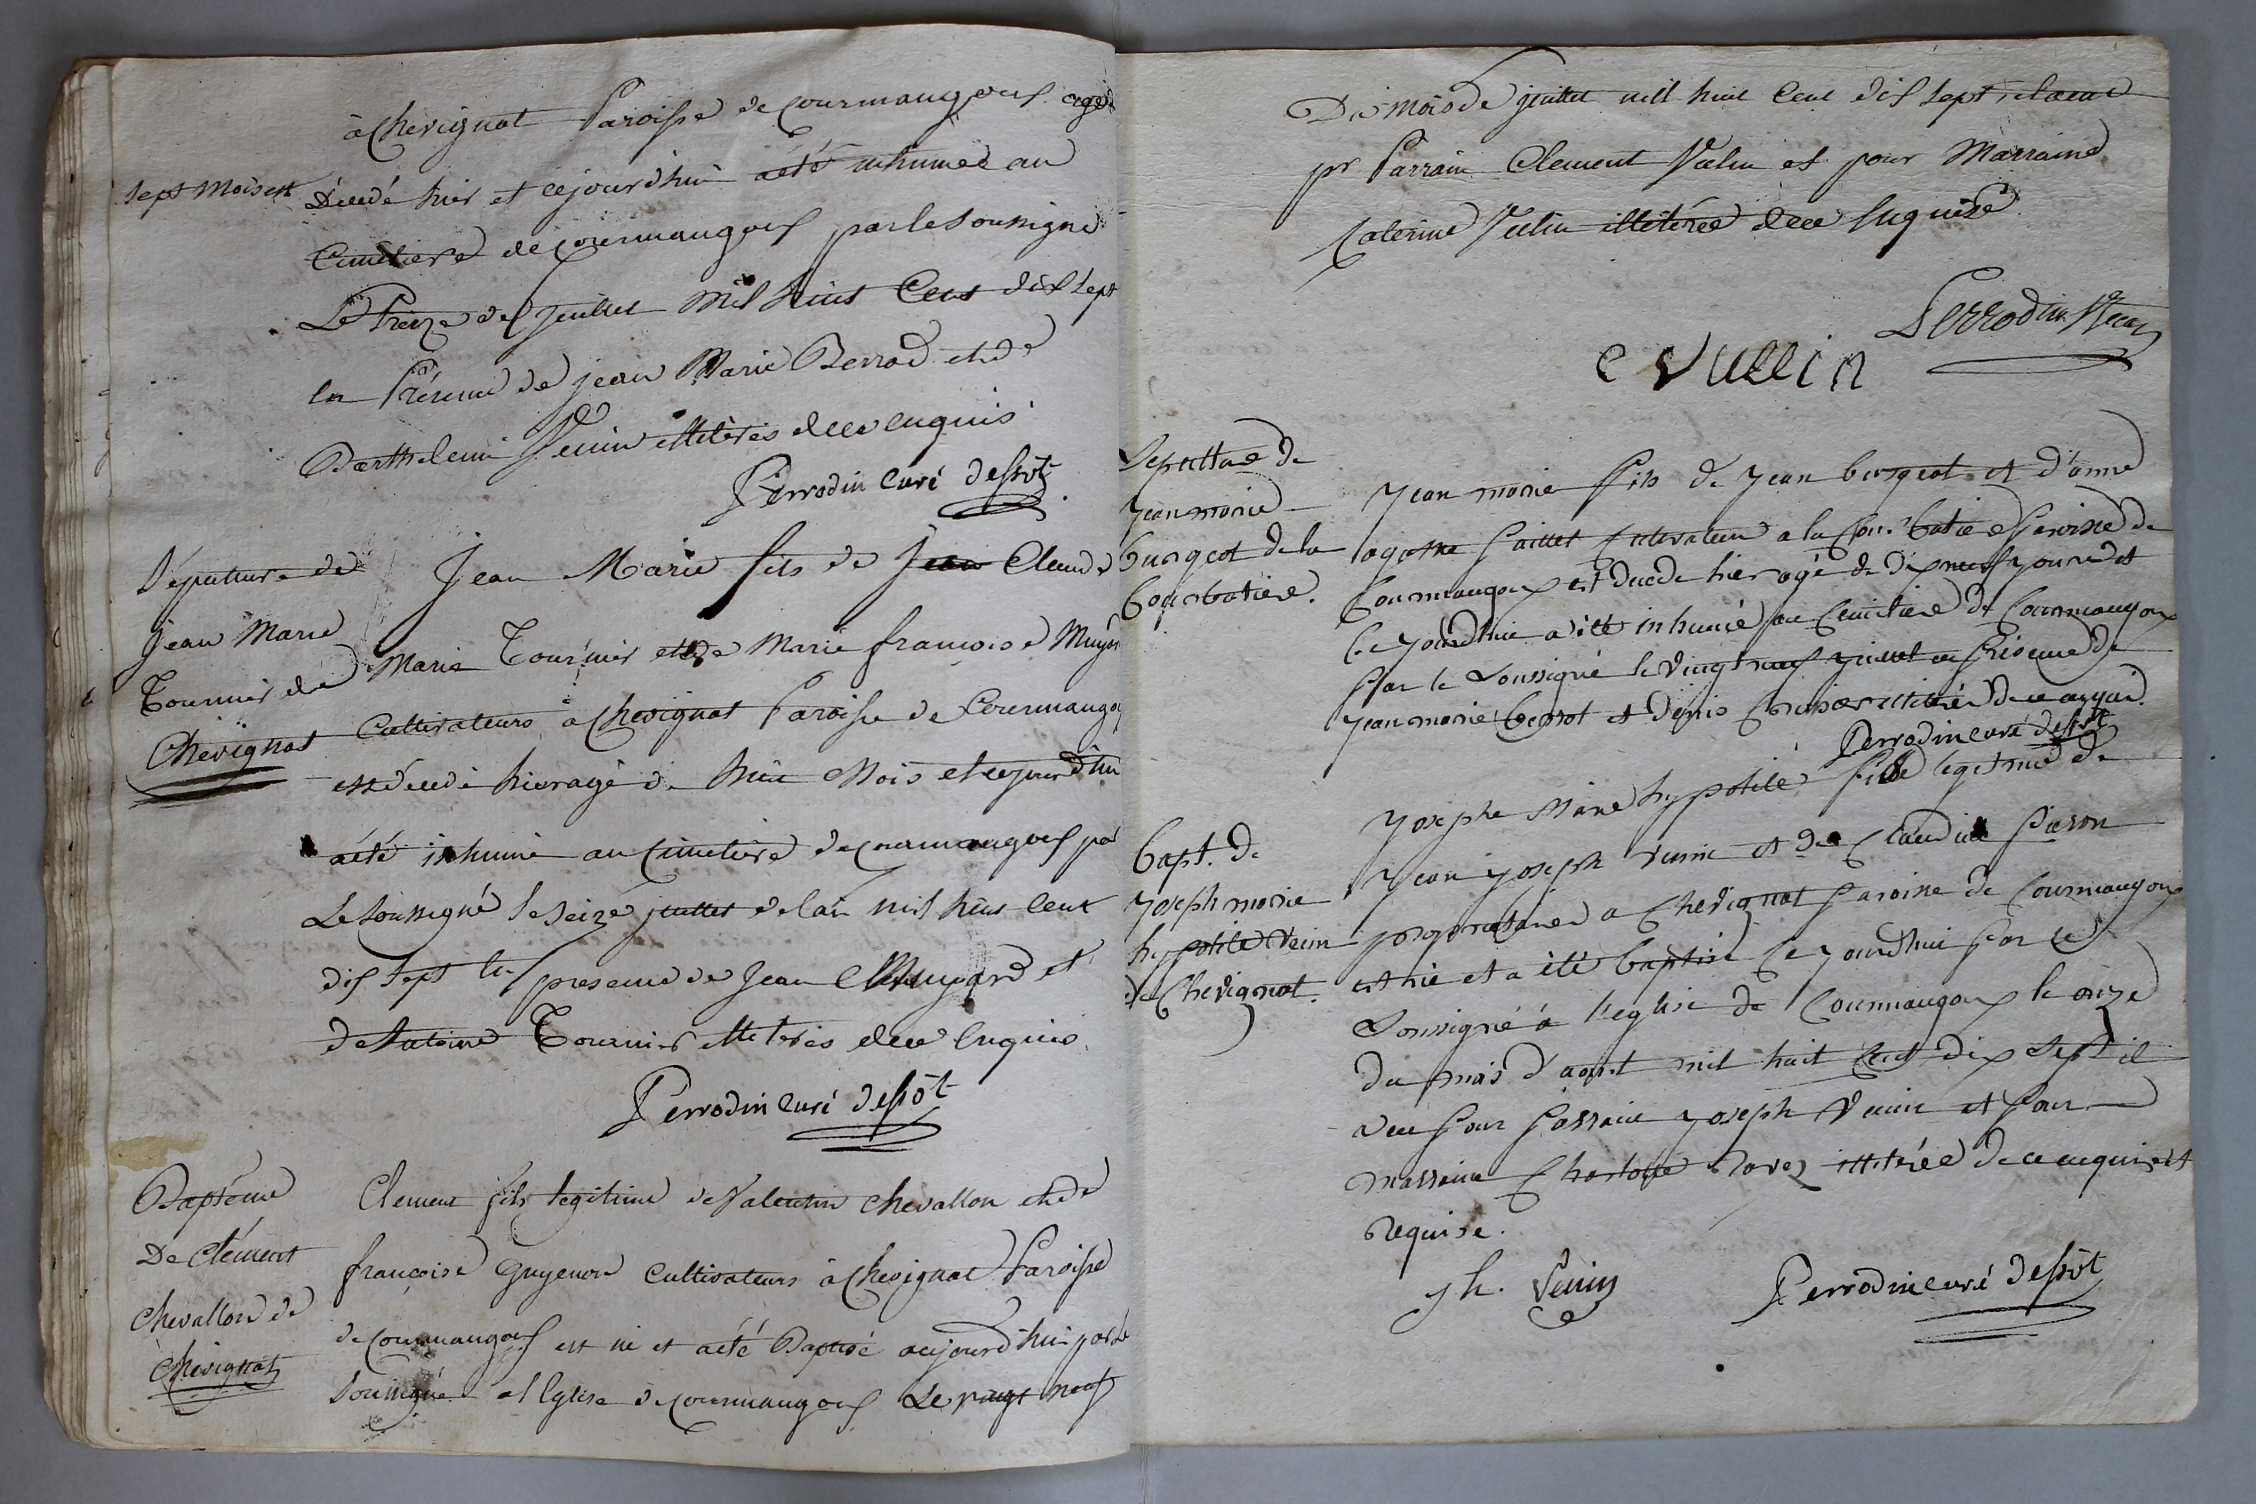 à Chevignat Paroisse de Courmangoux agé
sept mois est
Décédé hier et cejourd'hui a été inhumée au
Cimetiere de Courmangoux par le Soussigné
Le Treize de Juillet mil huit Cent dix Sept
en Présence de jean Marie Berrod et de
Barthelemi Venin illiterés de ce enquis
Perrodin curé desst
Sépulture de
jean Marie
Tournier de
Chevignat
Jean Marie fils de Jean Claude
Marie Tournier et de Marie françoise Muyard
Cultivateurs à Chevignat Paroisse de Courmangoux
est décédé hier agé de huit Mois et cejourd'hui
a été inhumé au Cimetiere de Courmangoux par
Le Soussigné le seize juillet de l'an mil huit cent
dix sept en presence de Jean Muyard et
de Antoine Tournier illiterés de ce enquis
Perrodin curé desst
Baptéme
De Clément
Chevallon de
Chevignat
Clement fils legitime de Valentin Chevallon et de
françoise Guyenon Cultivateurs à Chevignat Paroisse
de Courmangoux est né et a été Baptisé aujourd'hui par le
Soussigné a l'Eglise de Courmangoux Le vingt neuf
Du mois de juillet mil huit Cent dix Sept il a eu
pr Parrain Clement Vulin et pour Marraine
Caterine Vulin illitérée de ce enquise
Perrodin
C Vullin
Sepulture de
Jean marie
burgeot de la
Courbatiere.
Jean marie fils de Jean burgeot et d'anne
agathe paillet Cultivateur a la Courbatiere paroisse de
Courmangoux est decede hier agé de dix neuf jours et
Ce jourd'hui a été inhumé au Cimitiere de Courmangoux
par le Soussigné le vingt neuf juillet en presence de
Jean marie berrot et denis illitérés de ce enquis
Perrodin curé desst
bapt. de
joseph marie
hypolite Venin
de Chevignat.
Josephe Marie hypolite fille legitime de
Jean Joseph Venin et de Claudine pieron
proprietaires a Chevignat paroisse de Courmangoux
est née et a été baptisé Ce jourd'hui par le
Soussigné à l'eglise de Courmangoux le onze
du mois d'aout mil huit Cent dix Sept il
a eu pour parrain Joseph Venin et pour
marraine Charlotte illitérée de ce enquise et
requise.
jh. Venin
Perrodin curé desst